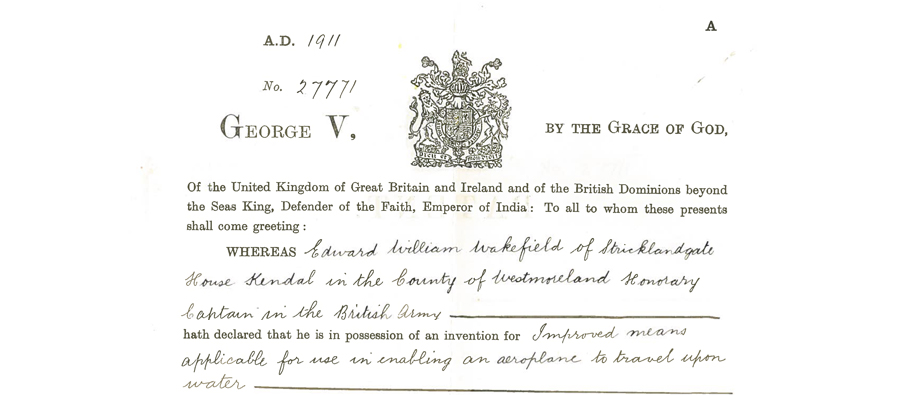 A
A.D. 1911
No. 27771
GEORGE V, BY THE GRACE OF GOD,
Of the United Kingdom of Great Britain and Ireland and of the British Dominions beyond
the Seas King, Defender of the Faith, Emperor of India: To all to whom these presents
shall come greeting:
WHEREAS Edward William Wakefield of Stricklandgate
House Kendal in the County of Westmoreland Honorary
Captain in the British Army
hath declared that he is in possession of an invention for Improved means
applicable for use in enabling an aeroplane to travel upon
water